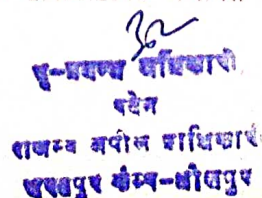 भू-प्रबन्ध अधिकारी
पदेन
राजस्व अपील प्राधिकारी
भरतपुर कैम्प-धौलपुर